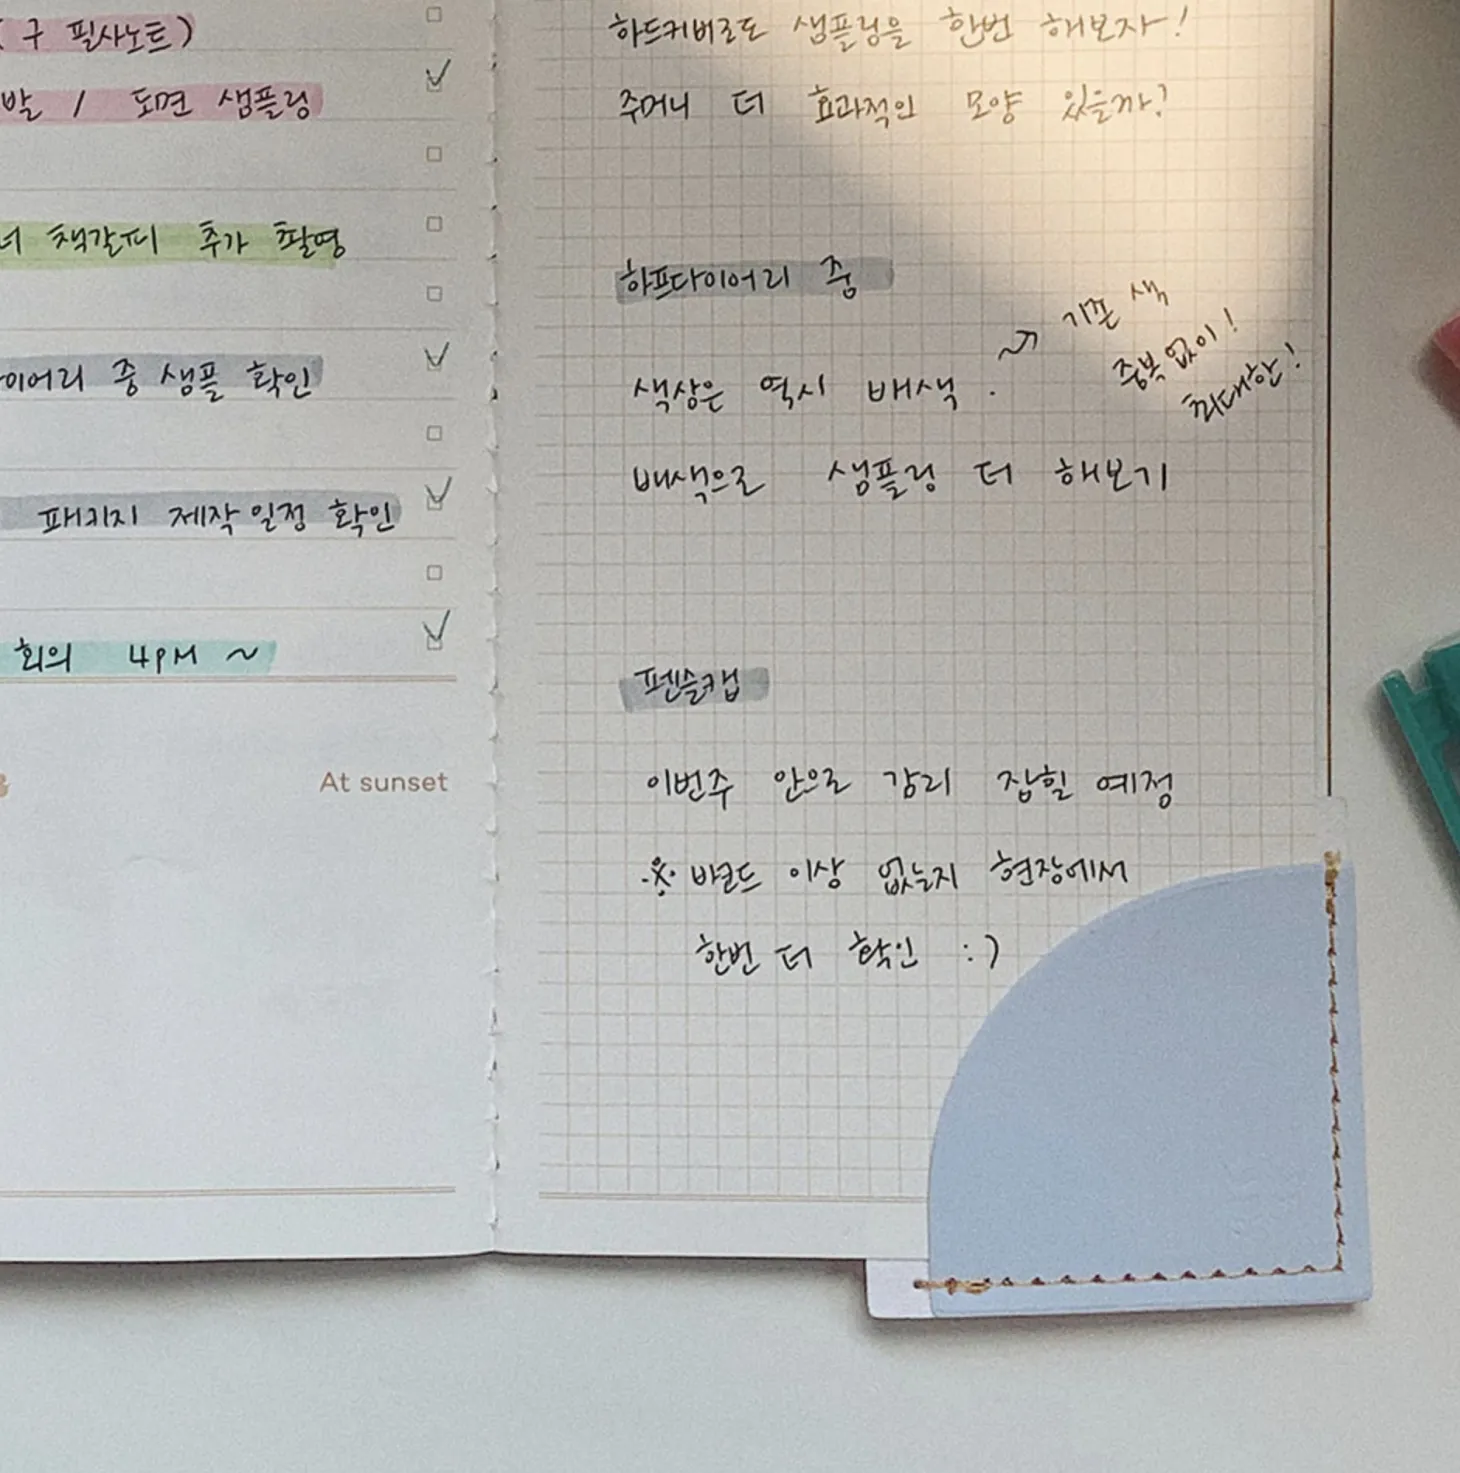 ( 구 필사노트)
발 / 도면 샘플링
너 책갈피 추가 촬영
이어리 중 샘플 확인
패키지 제작 일정 확인
회의 4PM ~
At sunset
하드커버로도 샘플링을 한번 해보자!
주머니 더 효과적인 모양 있을까?
하프다이어리 중
색상은 역시 배색.
기존 색
중복 없이!
최대한!
배색으로 샘플링 더 해보기
펜슬캡
이번주 안으로 감리 잡힐 예정
※ 바코드 이상 없는지 현장에서
한번 더 확인 :)